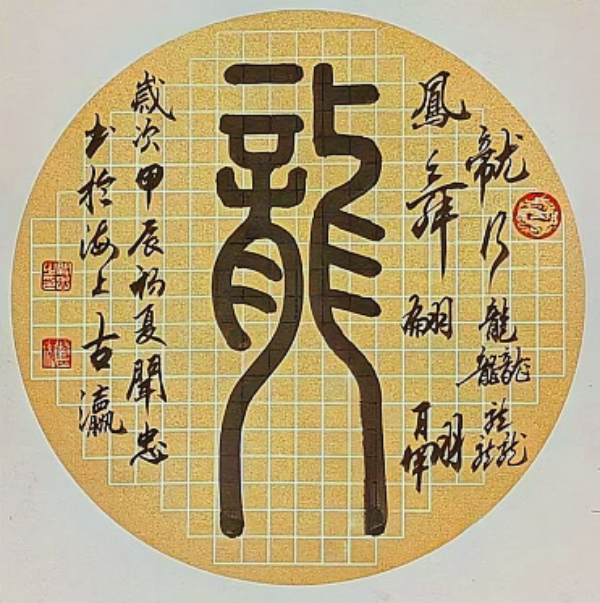 龍行龘龘
鳳舞翩翩
龍
歲次甲辰初夏聞忠
书於海上古瀛